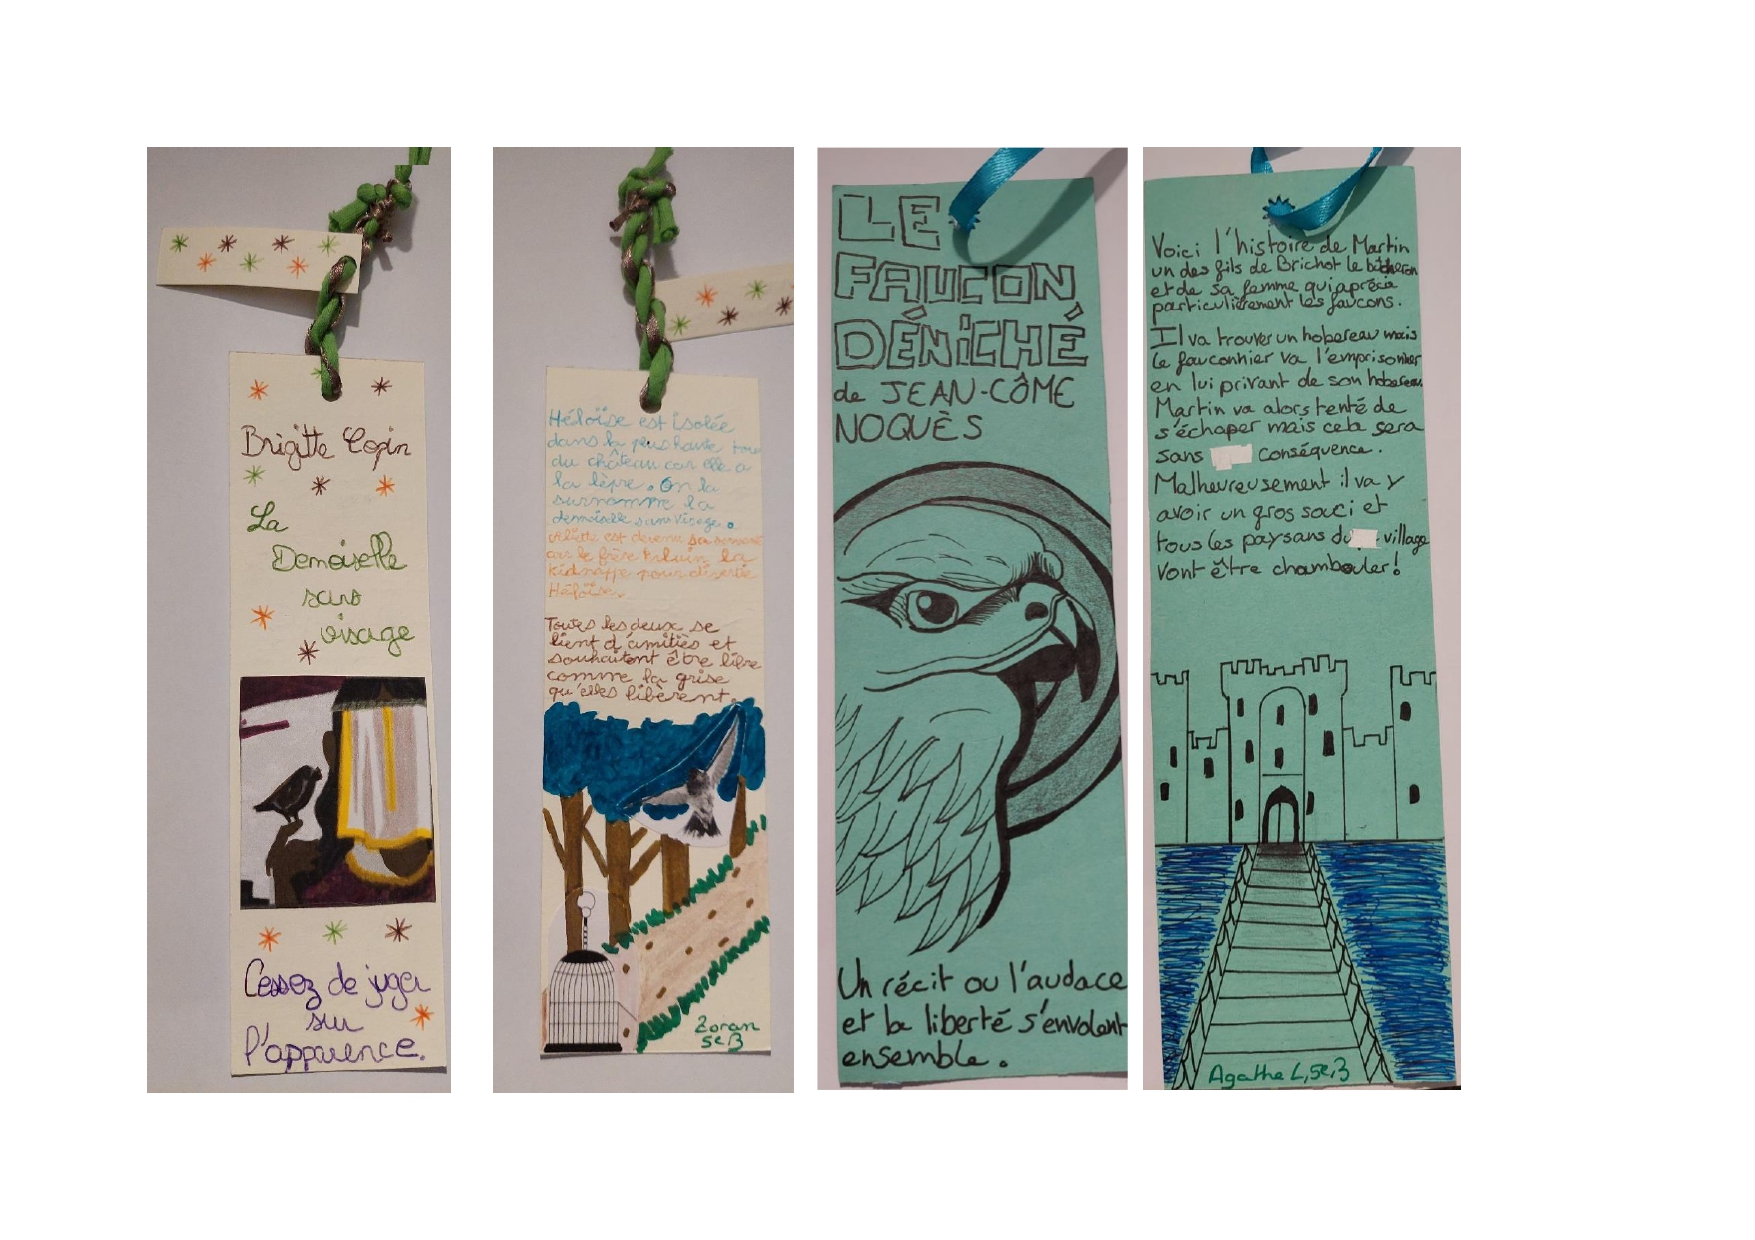 Brigitte Copin
La
Demoiselle
sans
visage
Cessez de juger
sur
l'apparence.
Héloïse est isolée
dans la plus haute tour
du château car elle a
la lèpre. On la
surnomme la
demoiselle sans visage.
est devenu sa servante
car le frère la
kidnappe pour divertir
Héloïse.
Toutes les deux se
lient d'amitiés et
souhaitent être libre
comme la grise
qu'elles libèrent.
Zoran
5e3
LE
FAUCON
DÉNICHÉ
de JEAN-CÔME
NOQUÈS
Un récit ou l'audace
et la liberté s'envolent
ensemble.
Voici l'histoire de Martin
un des fils de Brichot le bûcheron
et de sa femme qui apréca
particulièrement les faucons.
Il va trouver un hobereau mais
le fauconnier va l'emprisonner
en lui privant de son hobereau.
Martin va alors tenté de
s'échaper mais cela sera
sans conséquence.
Malheureusement il va y
avoir un gros souci et
tous les paysans du village
vont être chambouler!
Agathe L, 5e3